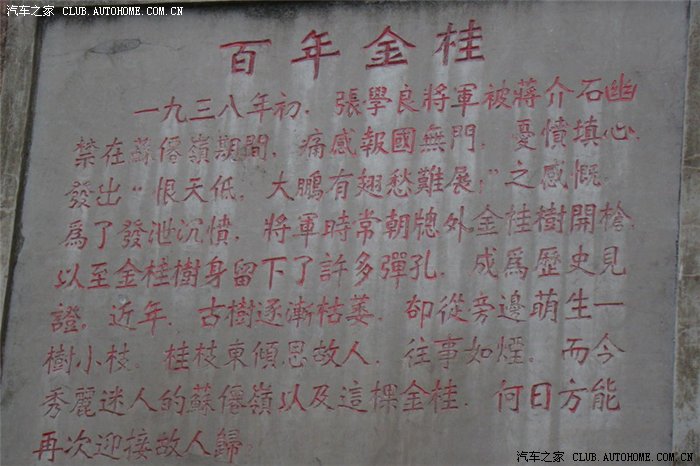 汽车之家 CLUB.AUTOHOME.COM.CN
百年金桂
一九三八年初．張學良將軍被蔣介石幽
禁在蘇僊嶺期間．痛感報國無門．憂憤填心．
發出“恨天低．大鵬有翅愁難展；”之感慨．
爲了發泄沉憤．將軍時常朝牕外金桂樹開槍．
以至金桂樹身留下了許多彈孔．成爲歷史見
證．近年．古樹逐漸枯萎．卻從旁邊萌生一
樹小枝．桂枝東傾思故人．往事如煙．而今
秀麗迷人的蘇僊嶺以及這棵金桂．何日方能
再次迎接故人歸。
汽车之家 CLUB.AUTOHOME.COM.CN